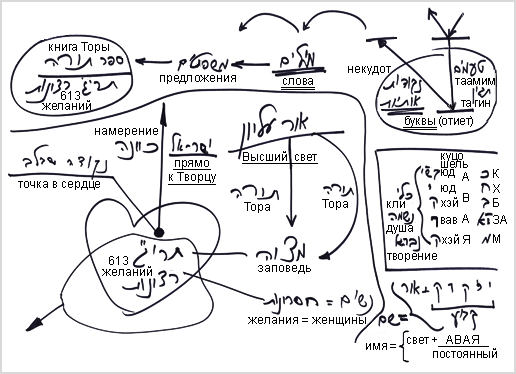 книга Торы
ספר תורה
תרי"ג רצונות
613
желаний
משפטים
предложения
מילים
слова
некудот
נקודות
אותיות
טעמים
таамим
תגין
тагин
буквы (отиет)
намерение
כוונה
ישר-אל
прямо
к Творцу
אור עליון
Высший свет
נקודה שבלב
точка в сердце
תורה
Тора
תורה
Тора
613
желаний
תרי"ג
רצונות
מצוה
заповедь
נשים = חסרונות
желания = женщины
куцо
шель
юд А
כ К
כלי
кли
י юд
ח Х
נשמה
душа
ק хэй В
ב Б
ו вав А
ЗА
נברא
творение
ק хэй Я
מ М
י ק ו ק + אור
קבוע
שם =
имя = свет + АВАЯ
постоянный